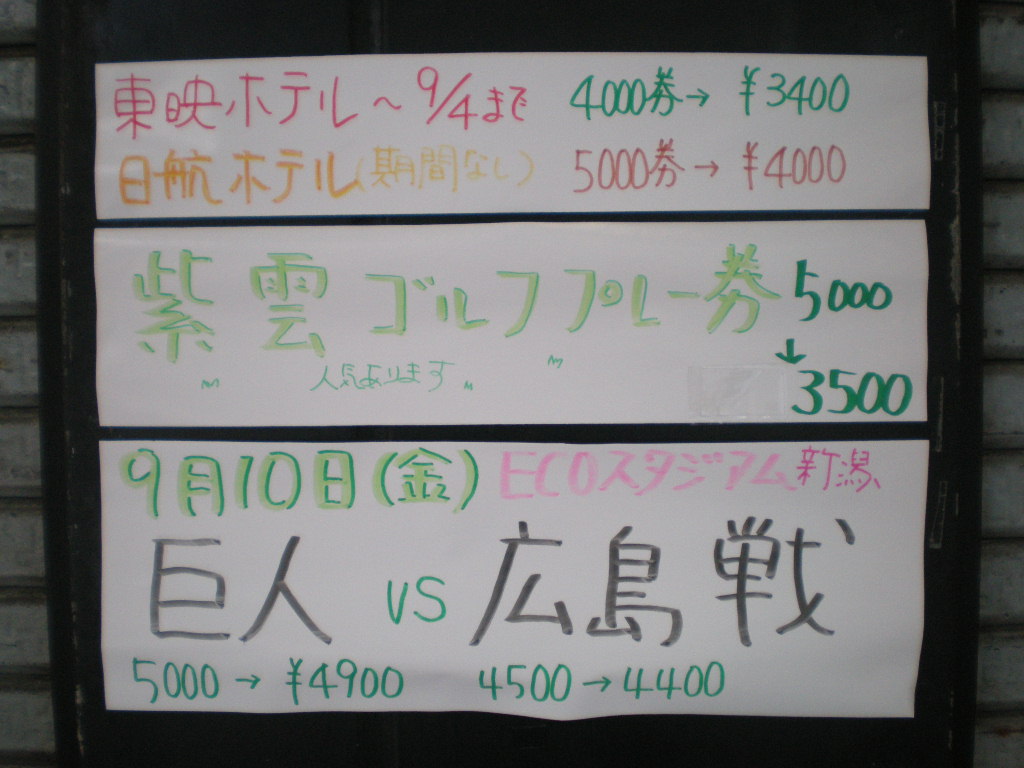 東映ホテル～9/4まで 4000券→ ¥3400
日航ホテル(期間なし) 5000券→ ¥4000
紫雲ゴルフプレー券 5000
↓
人気あります
3500
9月10日(金) ECOスタジアム新潟
巨人 vs 広島戦
5000→ ¥4900 4500→4400